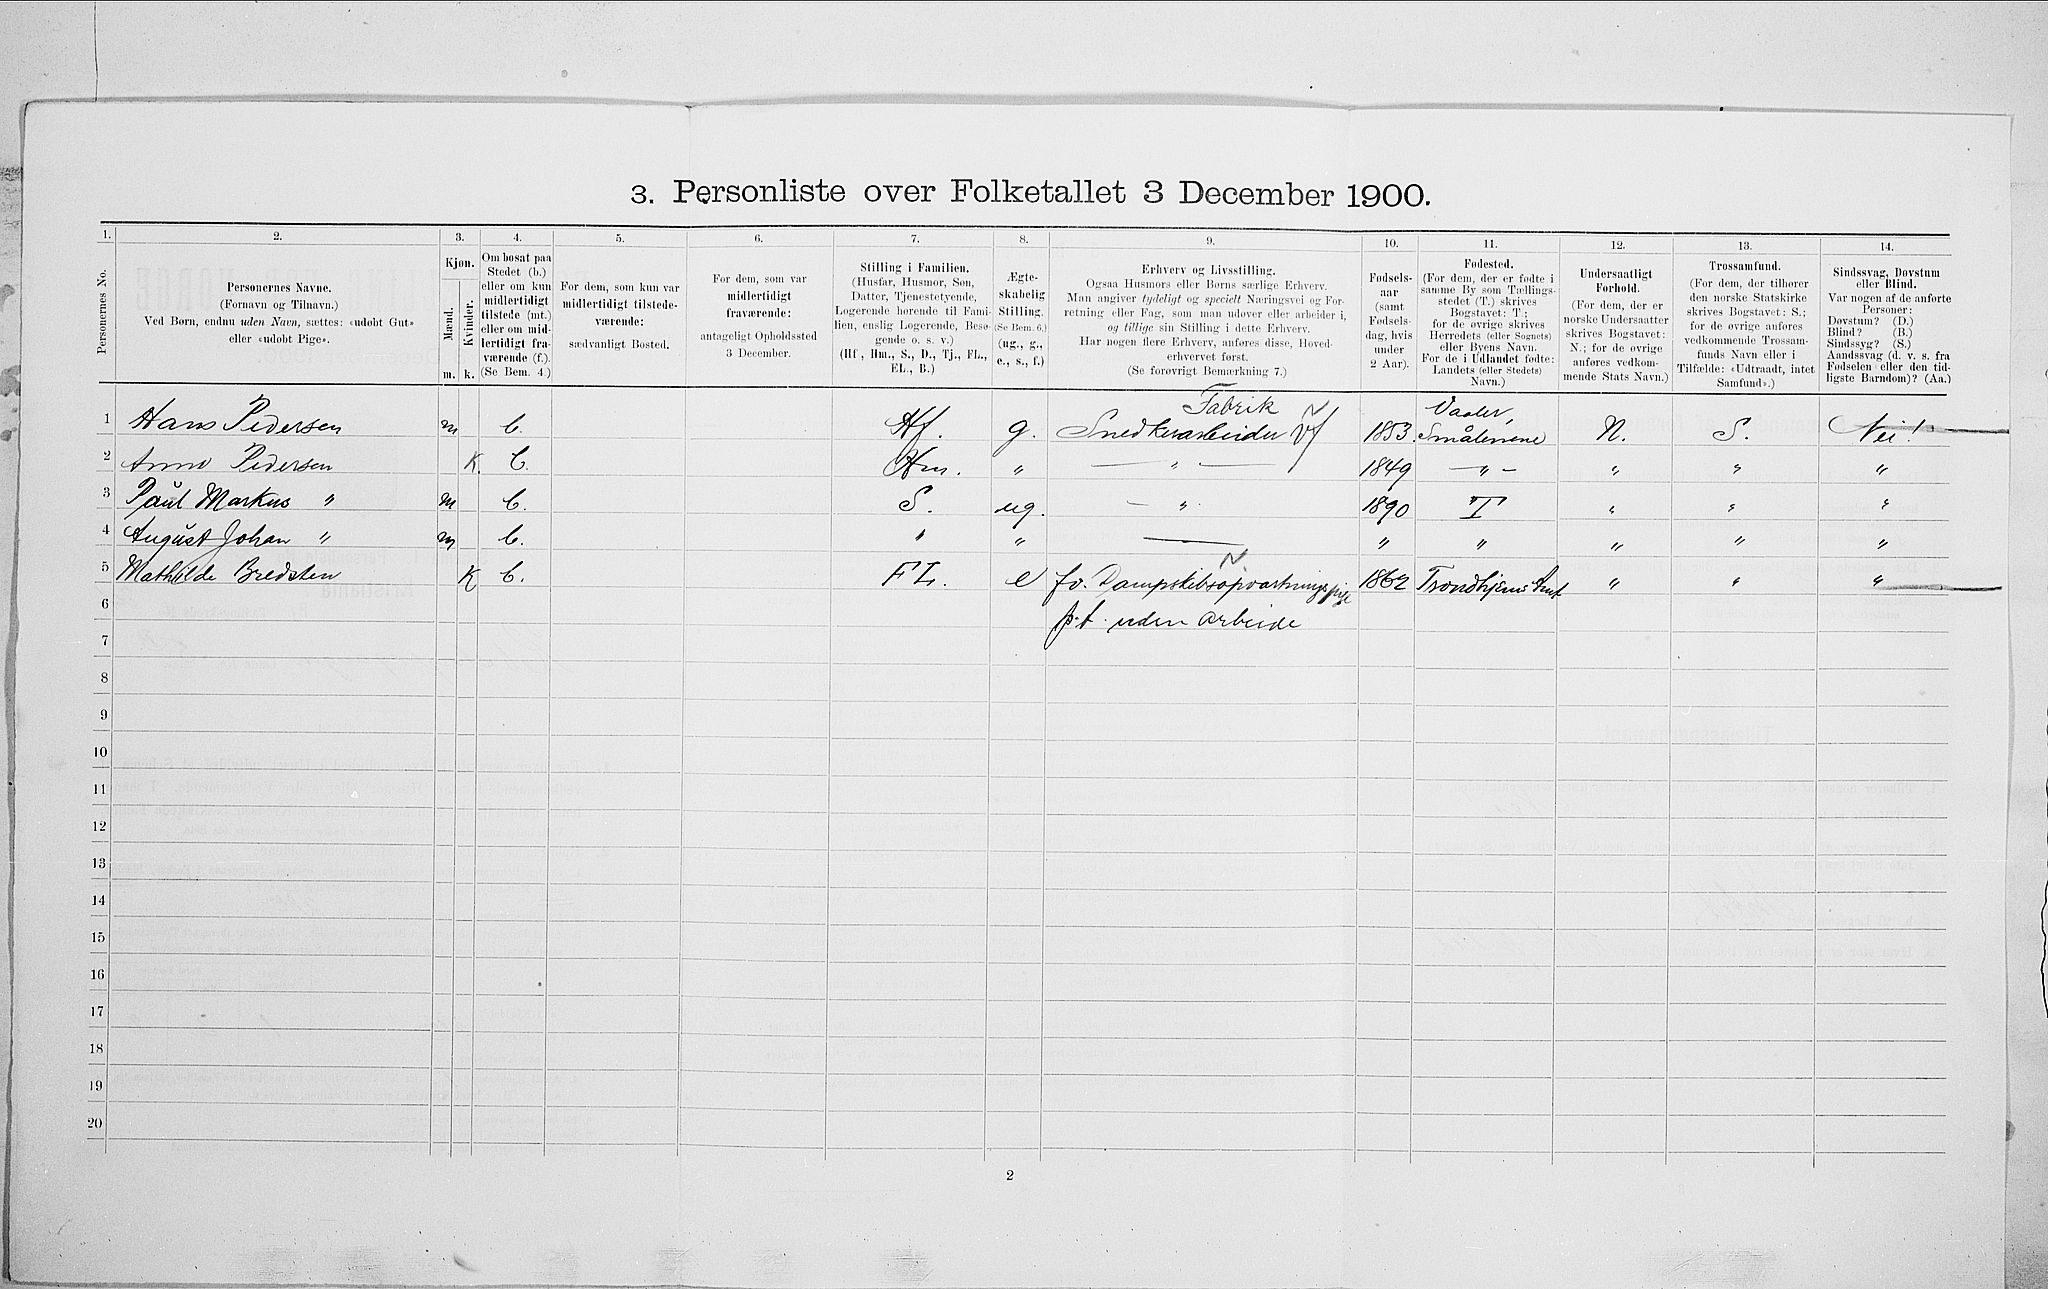 3. Personliste over Folketallet 3 December 1900.
1. 2. 3. 4. 5. 6. 7. 8. 9. 10. 11. 12. 13. 14.
Personernes No.
Personernes Navne.
(Fornavn og Tilnavn.)
Ved Børn, endnu uden Navn, sættes: «udøbt Gut»
eller «udøbt Pige».
Kjøn.
Mænd.
Kvinder.
m. k.
Om bosat paa
Stedet (b.)
eller om kun
midlertidigt
tilstede (mt.)
eller om mid-
lertidigt fra-
værende (f.).
(Se Bem. 4.)
For dem, som kun var
midlertidigt tilstede-
værende:
sædvanligt Bosted.
For dem, som var
midlertidigt
fraværende:
antageligt Opholdssted
3 December.
Stilling i Familien.
(Husfar, Husmor, Søn,
Datter, Tjenestetyende,
Logerende hørende til Fami-
lien, enslig Logerende, Besø-
gende o. s. v.)
(Hf., Hm., S., D., Tj., FL.,
EL., B.)
Ægte-
skabelig
Stilling.
(Se Bem. 6.)
(ug., g.,
e., s., f.)
Erhverv og Livsstilling.
Ogsaa Husmors eller Børns særlige Erhverv.
Man angiver tydeligt og specielt Næringsvei og For-
retning eller Fag, som man udøver eller arbeider i,
og tillige sin Stilling i dette Erhverv.
Har nogen flere Erhverv, anføres disse, Hoved-
erhvervet først.
(Se forøvrigt Bemærkning 7.)
Fødsels-
aar
(samt
Fødsels-
dag, hvis
under
2 Aar).
Fødested.
(For dem, der er fødte i
samme By som Tællings-
stedet (T.) skrives
Bogstavet: T.;
for de øvrige skrives
Herredets (eller Sognets)
eller Byens Navn.
For de i Udlandet fødte:
Landets (eller Stedets)
Navn.)
Undersaatligt
Forhold.
(For dem, der er
norske Undersaatter
skrives Bogstavet:
N.; for de øvrige
anføres vedkom-
mende Stats Navn.)
Trossamfund.
(For dem, der tilhører
den norske Statskirke
skrives Bogstavet: S.;
for de øvrige anføres
vedkommende Trossam-
funds Navn eller i
Tilfælde: «Udtraadt, intet
Samfund».)
Sindssvag, Døvstum
eller Blind.
Var nogen af de anførte
Personer:
Døvstum? (D.)
Blind? (B.)
Sindssyg? (S.)
Aandssvag (d. v. s. fra
Fødselen eller den tid-
ligste Barndom)? (Aa.)
Fabrik Vaaler,
1 Hans Pedersen m b. Hf. g. Snedkerarbeider 1853. Smålenene N. S. Nei!
2 Anna Pedersen K. b. Hm. " — " — 1849 — " — " " "
3 Paul Markus " m b. S. ug. — " 1890 T " " "
4 August Johan " m b. " " — " " " " "
5 Mathilde Bredsten K b. FL. e fv. Dampskibsopvartningspige 1862 Trondhjems Amt " " "
6 p.t. uden arbeide
7
8
9
10
11
12
13
14
15
16
17
18
19
20
2